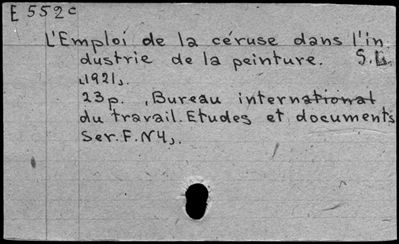 E 552c
L'Emploi de la céruse dans l'in
dustrie de la peinture. S.L.
[1921].
23p. (Bureau international
du travail. Etudes et documents
Ser. F. N4).